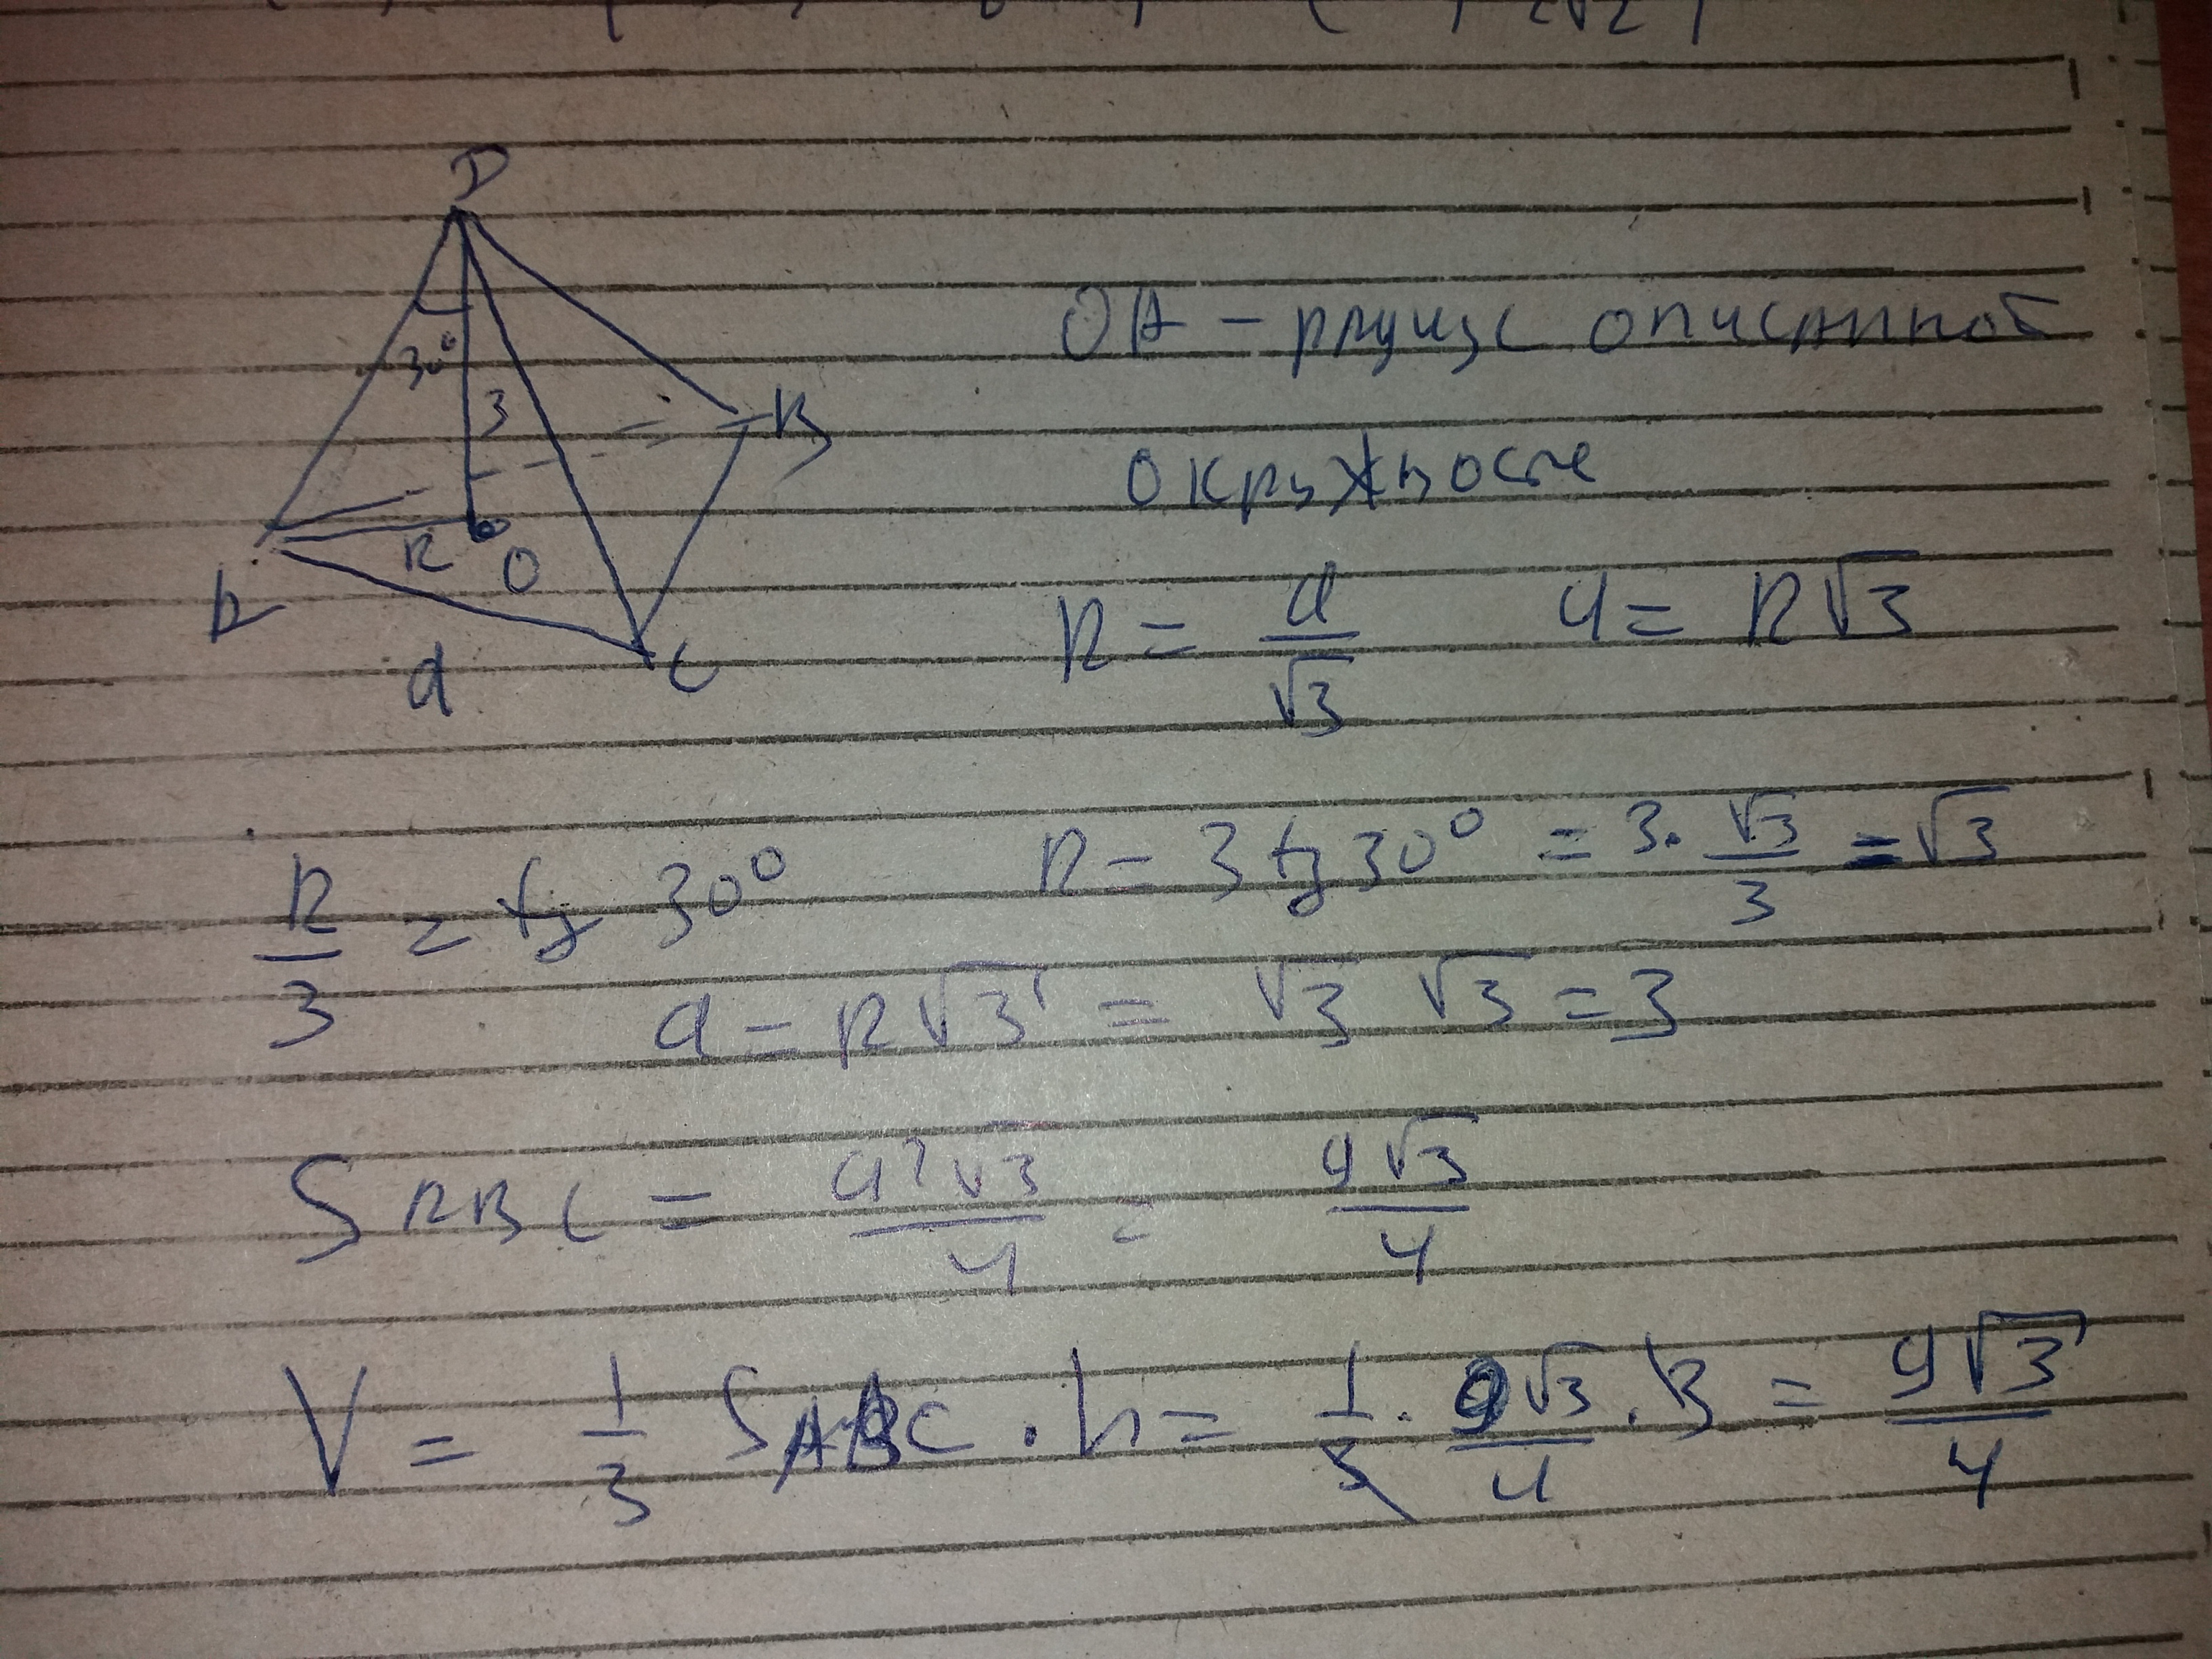 D
30°
3
B
R
O
A
a
C
OA – радиус описанной
окружности
R = a/√3 a = R√3
R/3 = tg 30° R = 3 tg 30° = 3 · √3/3 = √3
a = R√3 = √3 √3 = 3
S ABC = a²√3/4 = 9√3/4
V = 1/3 S ABC · h = 1/3 · 9√3/4 · 3 = 9√3/4